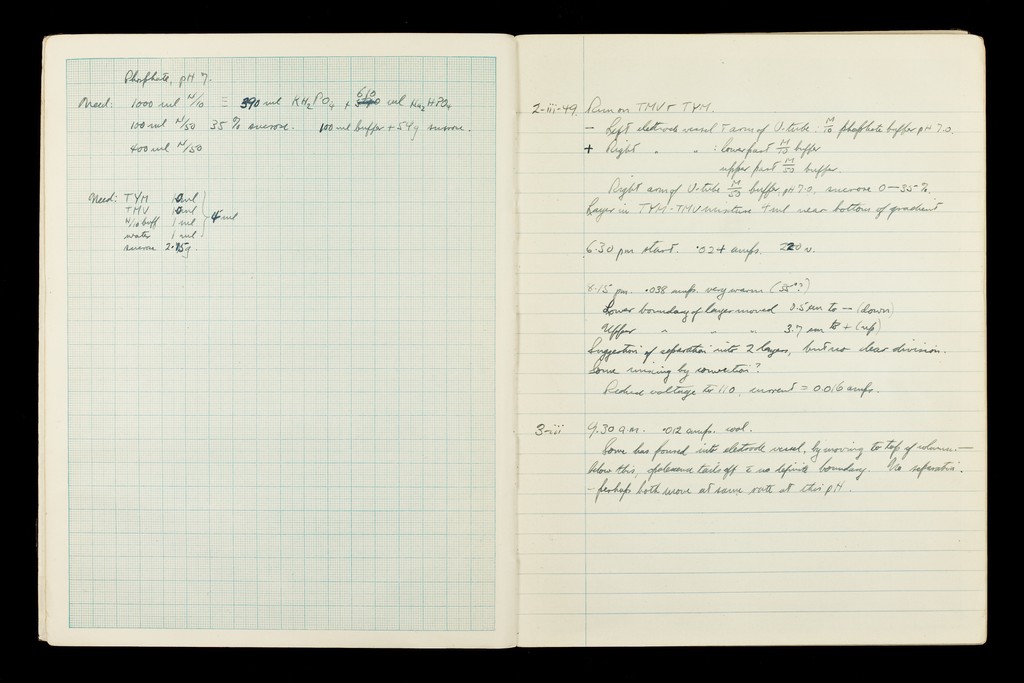 Phosphate, pH 7.
Need: 1000 ml N/10 ≡ 390 ml KH2PO4 + 610 ml Na2HPO4
100 ml N/50 35% sucrose. 100 ml buffer + 54g sucrose.
400 ml N/50
Need: TYM 1.0 ml
TMV 1.0 ml
N/10 buff 1 ml } 4 ml
water 1 ml
sucrose 2.15g.
2-iii-49. Run on TMV + TYM.
- Left electrode vessel + arm of U-tube. M/10 phosphate buffer pH 7.0.
+ Right " " : lower part M/10 buffer
upper part M/50 buffer.
Right arm of U-tube M/50 buffer, pH 7.0, sucrose 0-35%.
Layer in TYM-TMV mixture 4 ml near bottom of gradient
6:30 pm start. .024 amps. 220 v.
8.15 pm. .038 amps very warm (35°?)
Lower boundary of layer moved 0.5 cm to - (down)
Upper " " " 3.7 cm to + (up)
Suggestion of separation into 2 layers, but no clear division.
Some mixing by convection?
Reduce voltage to 110, current = 0.016 amps.
3-iii 9.30 a.m. .012 amps. cool.
Some has passed into electrode vessel, by moving to top of column. -
below this, opalescence tails off c no definite boundary. No separation.
- perhaps both move at same rate at this pH.